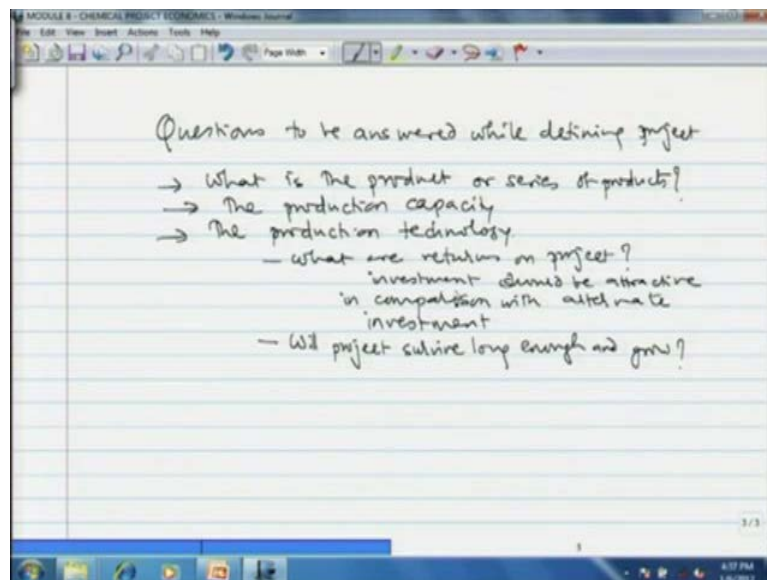 MODULE 8 - CHEMICAL PROJECT ECONOMICS - Windows Journal
File Edit View Insert Actions Tools Help
Page Width
Questions to be answered while defining project
→ What is the product or series of products?
→ The production capacity
→ The production technology
— what are returns on project?
investment should be attractive
in comparison with alternate
investment
— Will project survive long enough and grow?
3/3
3
4:57 PM